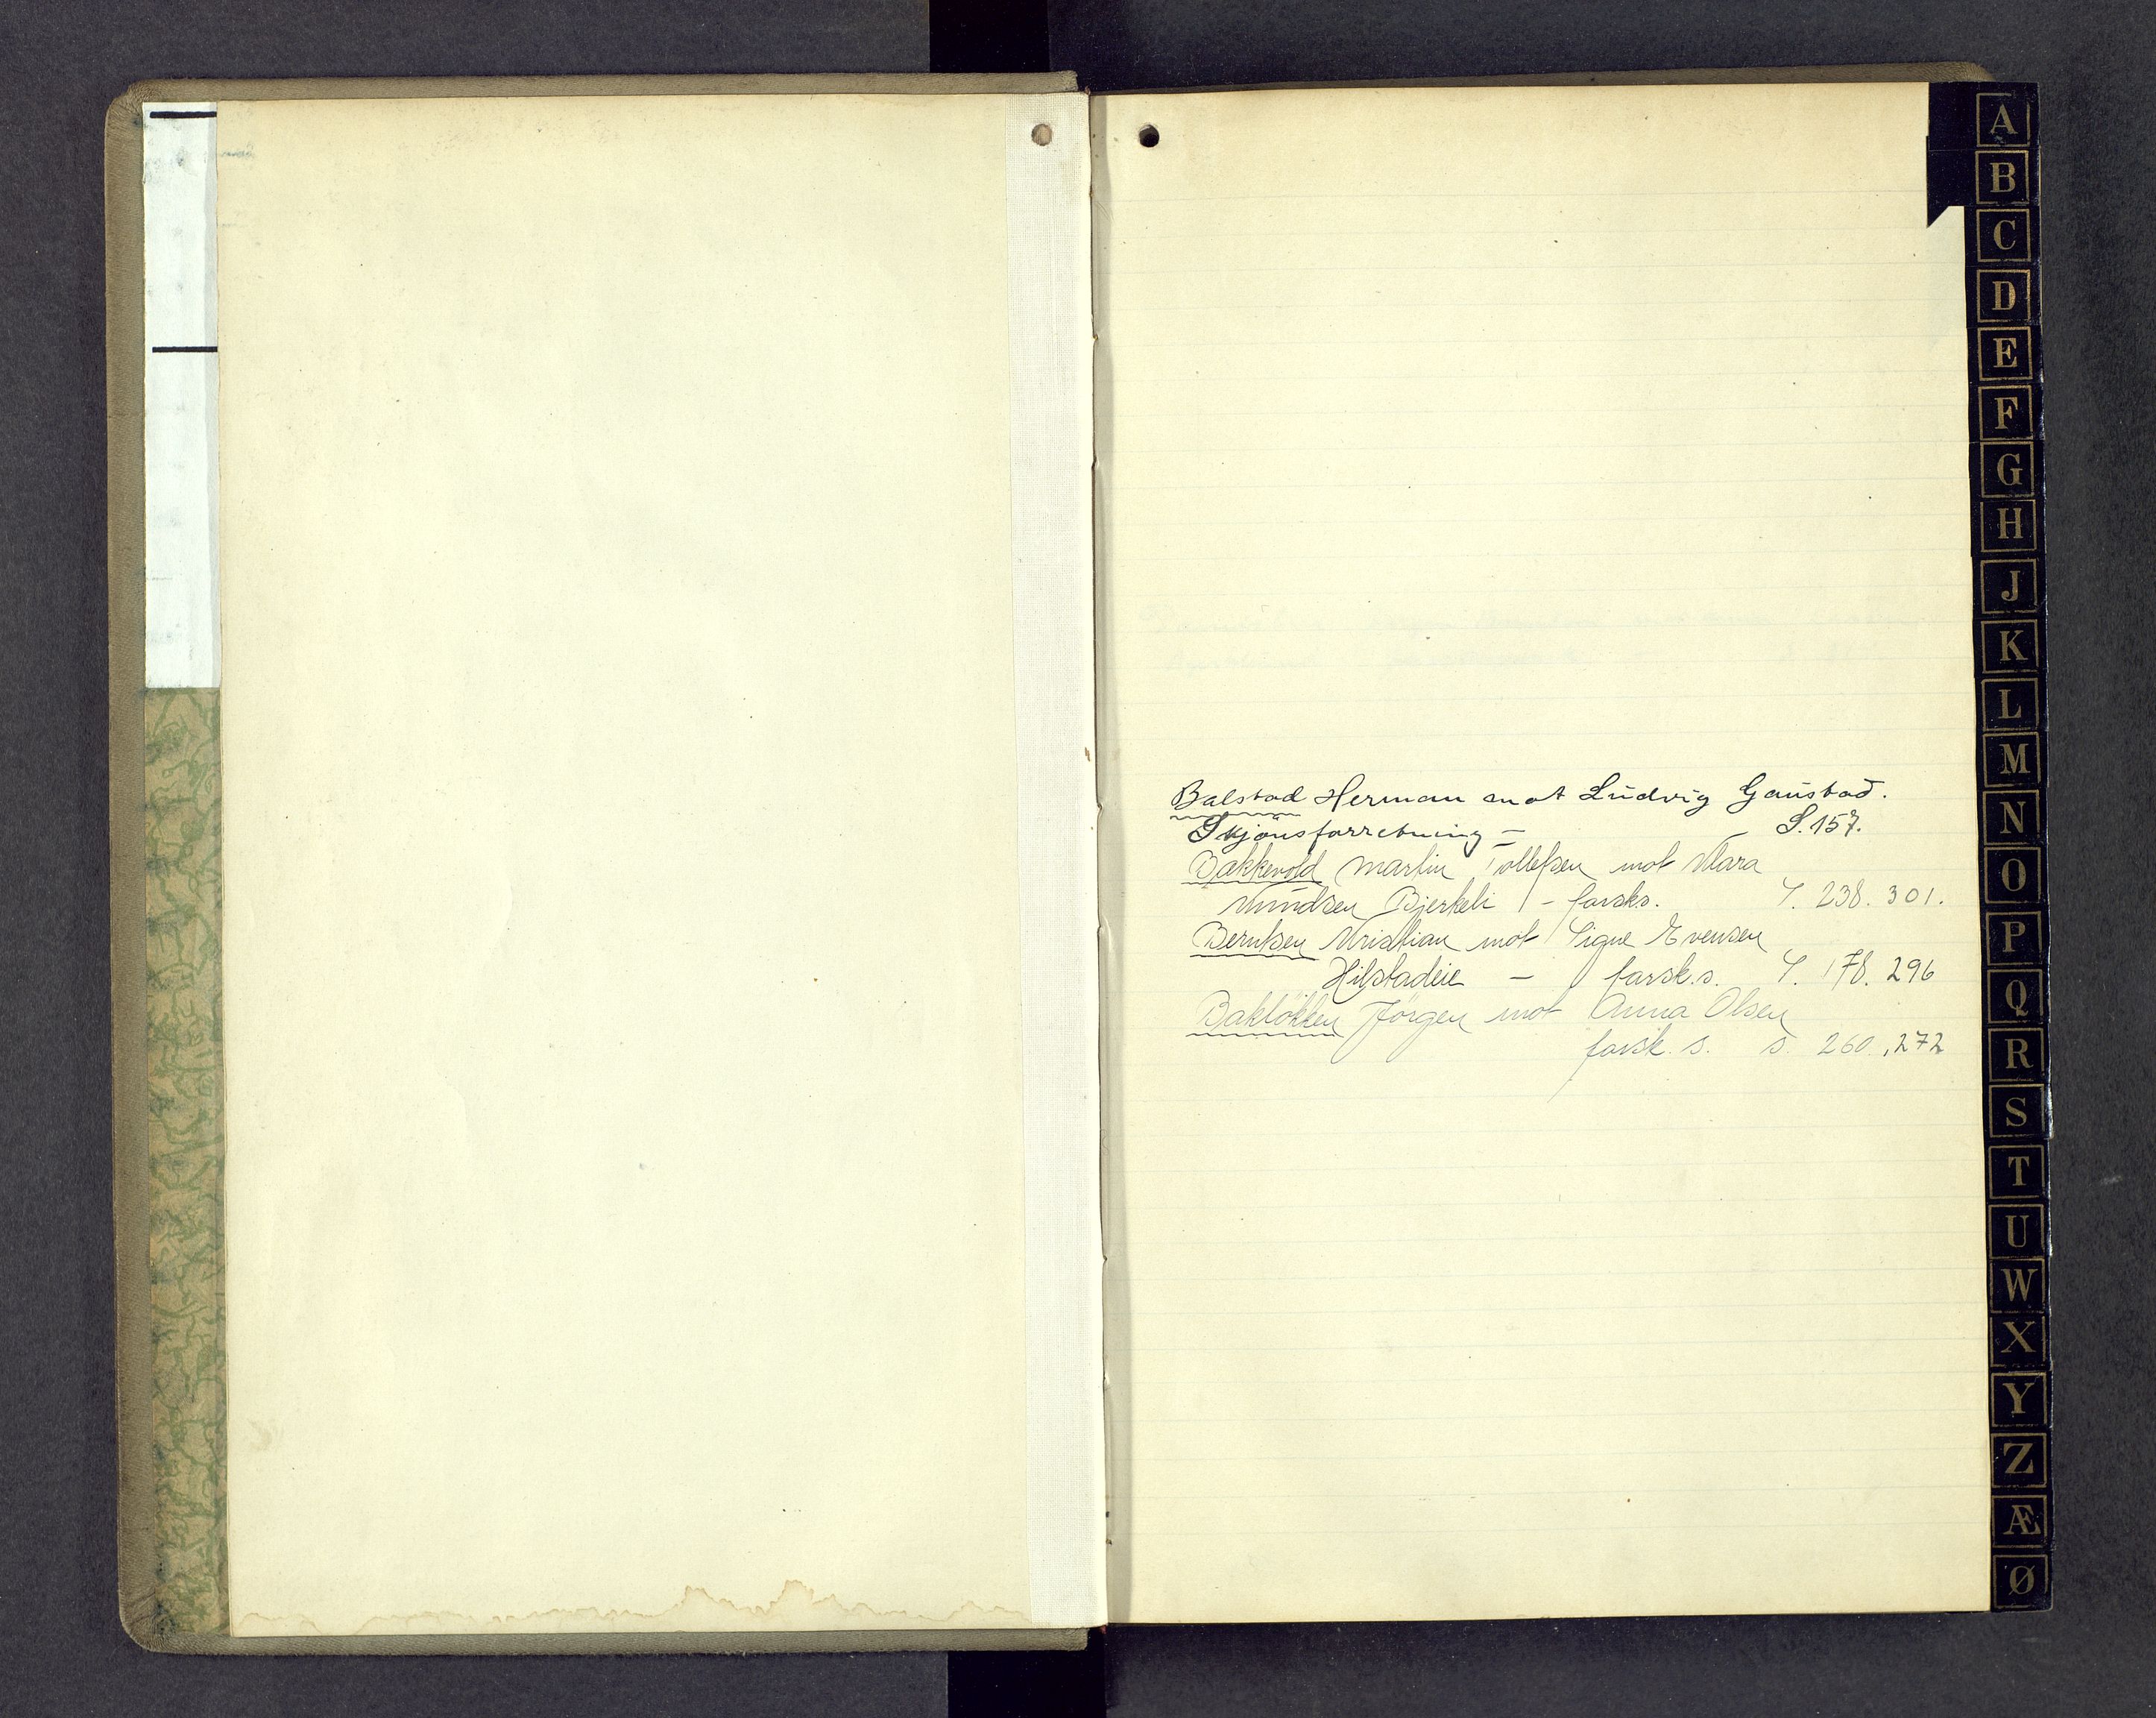 Balstad Herman mot Ludvig Gaustad.
Skjönsforretning — S. 157.
Bakkevold Martin Tollefsen mot Klara
Knudsen Bjerkeli - farsks. S. 238. 301.
Berntsen Kristian mot Signe Evensen
Hilstadeie — farsk.s. S. 178. 296
Baklökken Jörgen mot Anna Olsen
farsk. s. s. 260., 272
A
B
C
D
E
F
G
H
J
K
L
M
N
O
P
Q
R
S
T
U
W
X
Y
Z
Æ
Ø